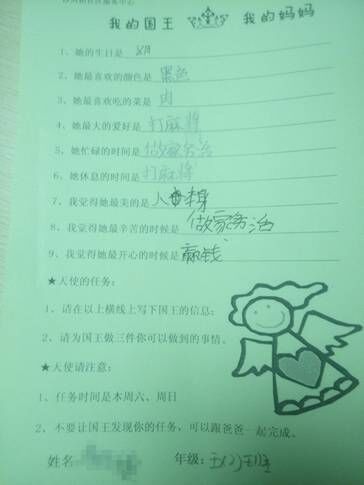 我的国王 我的妈妈
1、她的生日是
2、她最喜欢的颜色是 黑色
3、她最喜欢吃的菜是 肉
4、她最大的爱好是 打麻将
5、她忙碌的时间是 做家务活
6、她休息的时间是 打麻将
7、我觉得她最美的是 人
8、我觉得她最辛苦的时候是 做家务活
9、我觉得她最开心的时候是 赢钱
★天使的任务：
1、请在以上横线上写下国王的信息；
2、请为国王做三件你可以做到的事情。
★天使请注意：
1、任务时间是本周六、周日
2、不要让国王发现你的任务，可以跟爸爸一起完成。
姓名 年级：五(2)班